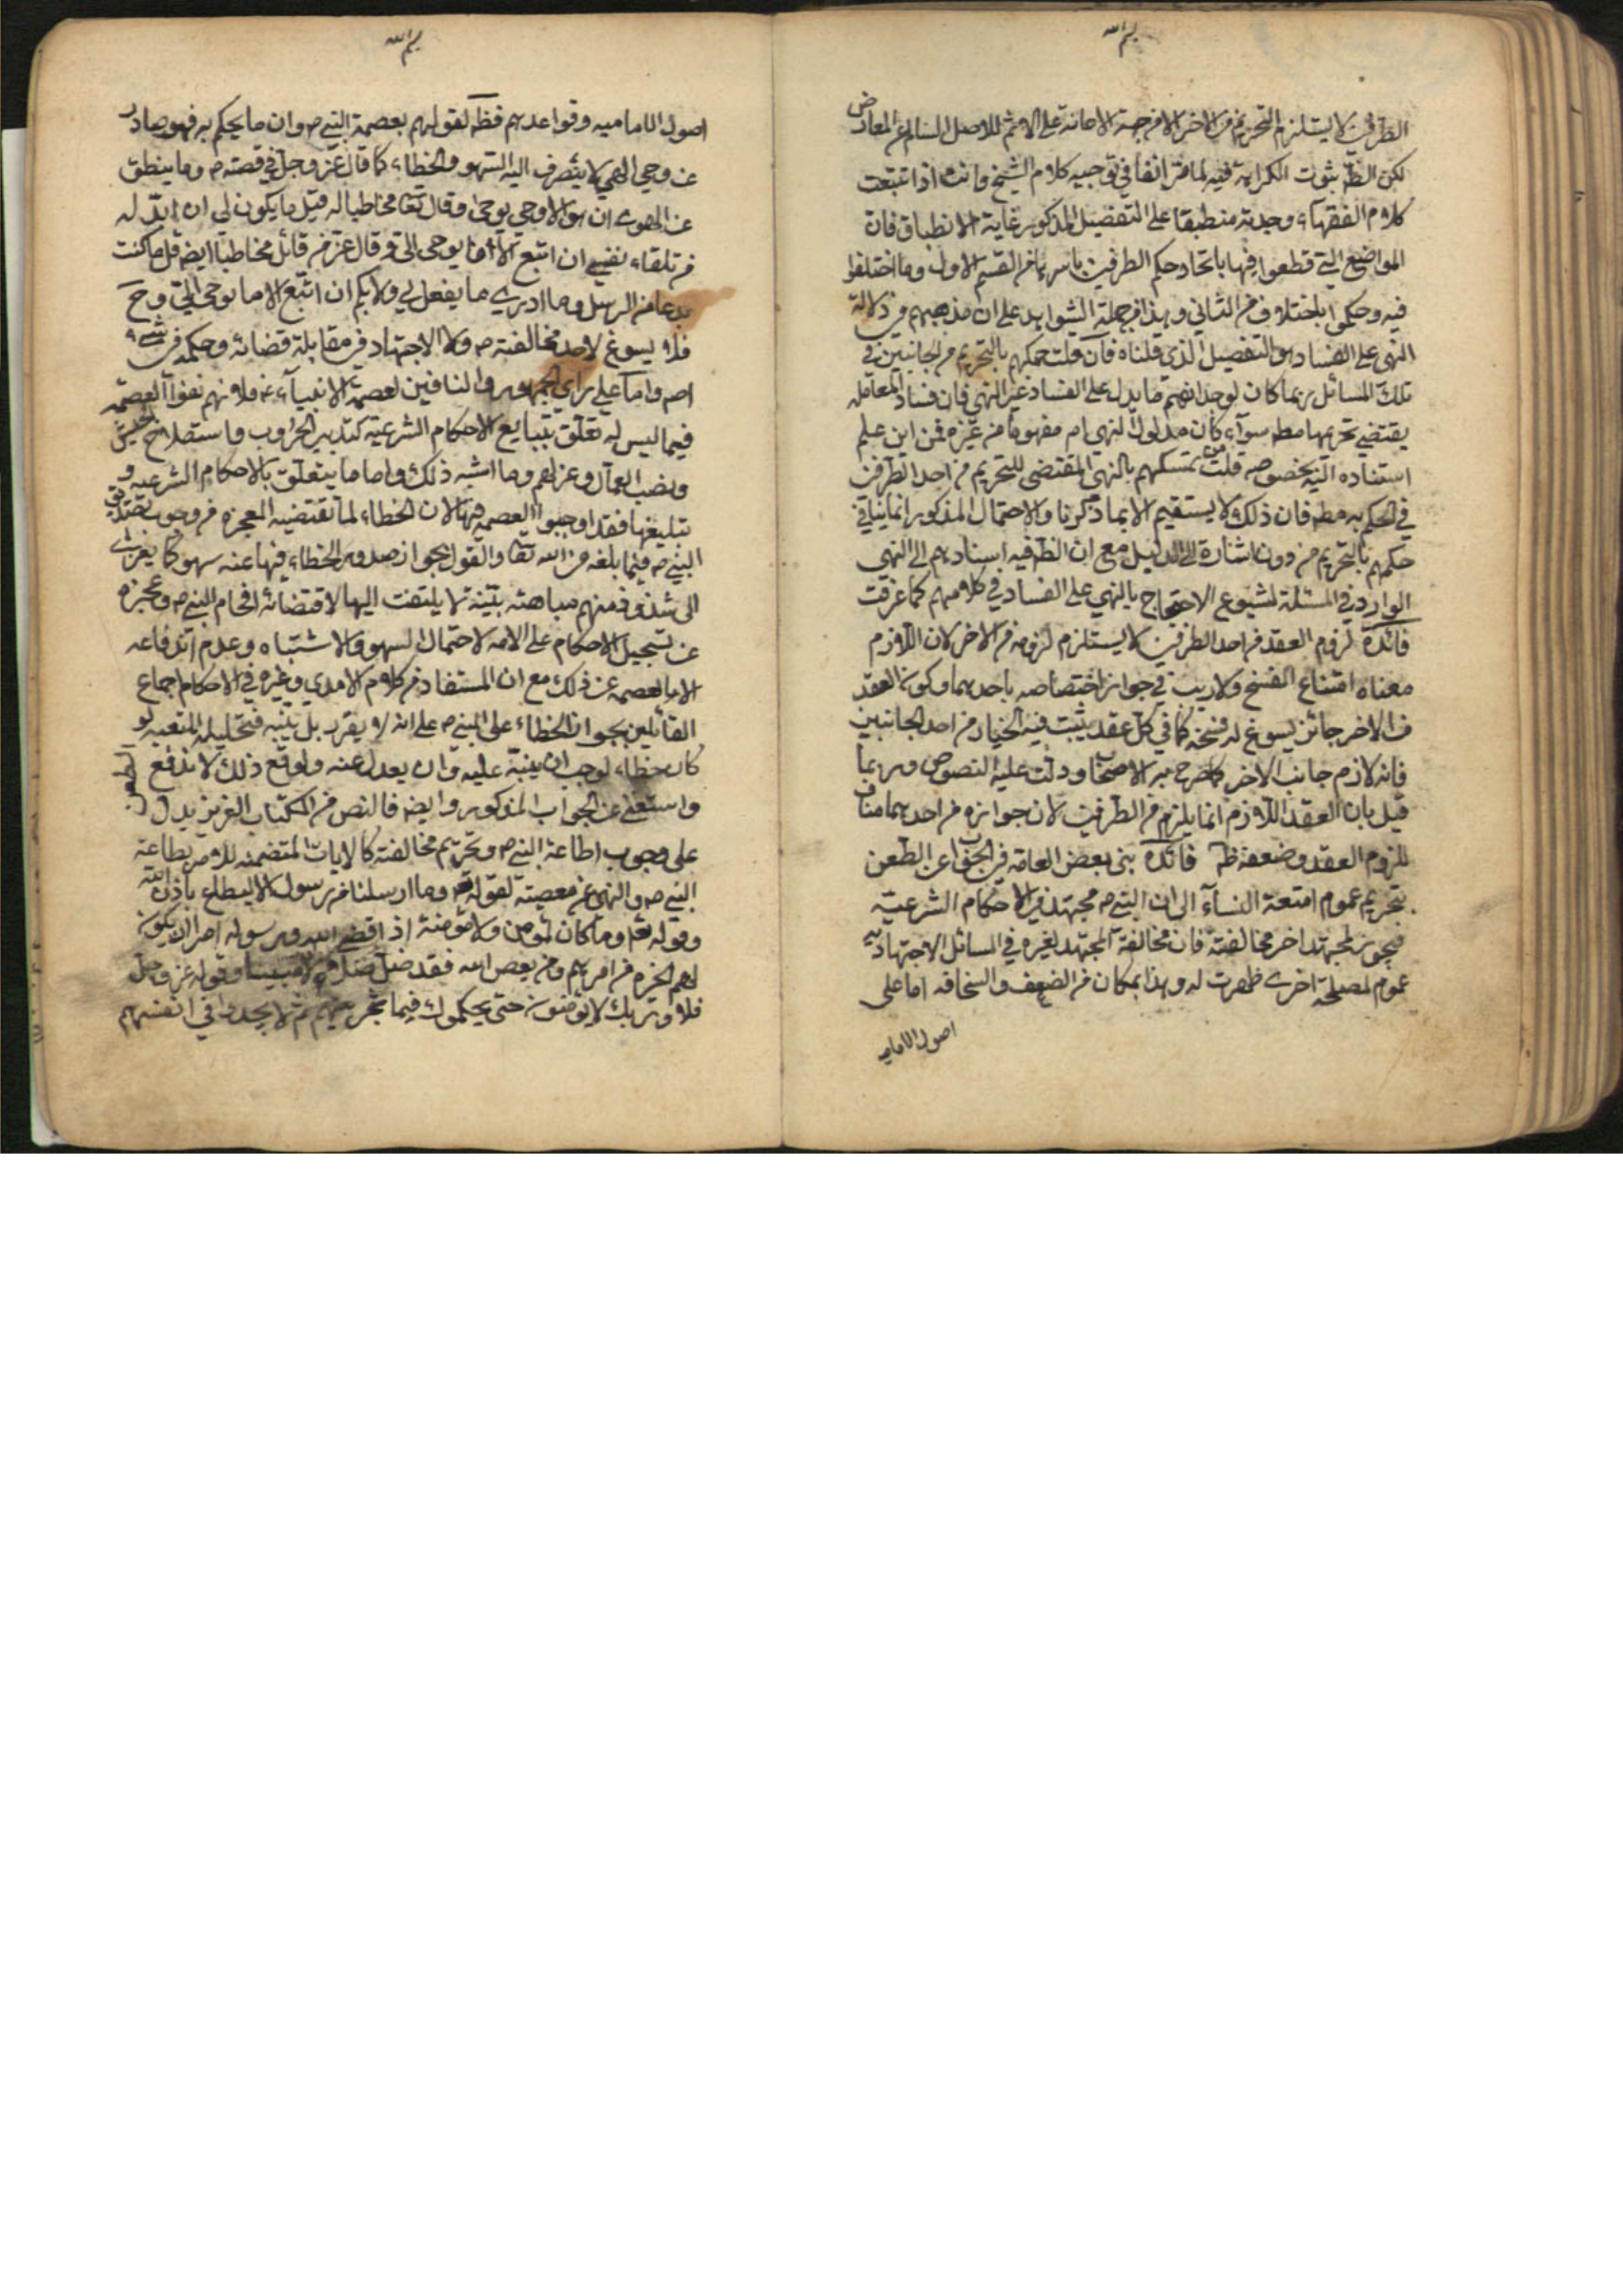 بسم الله
الطرفين لا يستلزم التحريم من الاخر الا من جهة الاعانة على الاثم للاصل السالم عن المعارض
لكن الظ ثبوت الكراهة فيه لما مر انفا في توجيه كلام الشيخ وانت اذا تتبعت
كلام الفقهاء وجدته منطبقا على التفصيل المذكور غاية الانطباق فان
المواضع التي قطعوا فيها باتحاد حكم الطرفين باسرها من القسم الاول وما اختلفوا
فيه وحكموا باختلاف من الثاني وهذا من جملة الشواهد على ان مذهبهم في دلالة
النهي على الفساد هو التفصيل الذي قلناه فان قلت حكمهم بالتحريم من الجانبين في
تلك المسائل ربما كان لوجدانهم ما يدل على الفساد غير النهي فان فساد المعامله
يقتضي تحريمها مط سواء كان مدلول النهي ام مفهوما من غيره فمن اين علم
استناده اليه بخصوصه قلت تمسكهم بالنهي المقتضي للتحريم من احد الطرفين
في الحكم به مط فان ذلك لا يستقيم الا بما ذكرنا والاحتمال المذكور انما ينافي
حكمهم بالتحريم من دون اشارة الى الدليل مع ان الظ فيه اسنادهم الى النهي
الوارد في المسئلة لشيوع الاحتجاج بالنهي على الفساد في كلامهم كما عرفت
فائدة لزوم العقد من احد الطرفين لا يستلزم لزومه من الاخر لان اللازم
معناه امتناع الفسخ ولا ريب في جواز اختصاصه باحدهما وكون العقد
من الاخر جائز يسوغ له فسخه كما في كل عقد يثبت فيه الخيار من احد الجانبين
فانه لازم جانب الاخر كما صرح به الاصحاب ودلت عليه النصوص وربما
قيل بان العقد اللازم انما يلزم من الطرفين لان جوازه من احدهما مناف
للزوم العقد وضعفه ظ فائدة بنى بعض العامه في الجواب عن الطعن
بتحريم عموم متعة النساء الى ان النبي ص مجتهد في الاحكام الشرعيه
فيجوز لمجتهد اخر مخالفته فان مخالفة المجتهد لغيره في المسائل الاجتهاديه
عموم لمصلحة اخرى ظهرت له وهذا بمكان من الضعف والسخافه اما على
اصول الاماميه
بسم الله
اصول الاماميه وقواعدهم فظ لقولهم بعصمة النبي ص وان ما يحكم به فهو صادر
عن وحي الهي لا يتصرف اليه السهو والخطاء كما قال عز وجل في قصته ص وما ينطق
عن الهوى ان هو الا وحي يوحى وقال تعا مخاطبا له قل ما يكون لي ان ابدله
من تلقاء نفسي ان اتبع الا ما يوحى الي وقال عز من قائل مخاطبا ايضا قل ما كنت
بدعا من الرسل وما ادري ما يفعل بي ولا بكم ان اتبع الا ما يوحى الي وح
فلا يسوغ لاحد مخالفته ص ولا الاجتهاد في مقابلة قضائه وحكمه في شيء
اصلا واما على راي الجمهور والنافين لعصمة الانبياء ع فلانهم نفوا العصمه
فيما ليس له تعلق بتبايع الاحكام الشرعيه كتدبير الحروب واستصلاح الجيش
ونصب العمال وعزلهم وما اشبه ذلك واما ما يتعلق بالاحكام الشرعيه و
تبليغها فقد اوجبوا العصمه فيها لان الخطاء لما تقتضيه المعجزه من وجوب تصديق
النبي ص فيما بلغه من الله تعا والقول بجواز صدور الخطاء فيها عنه سهوا كما يعزى
الى شذوذ منهم مباهته بينة لا يلتفت اليها لاقتضائه افحام النبي ص وعجزه
عن تسجيل الاحكام على الامه لاحتمال السهو والاشتباه وعدم اندفاعه
الا بالعصمه عن ذلك مع ان المستفاد من كلام الامدي وغيره في الاحكام اجماع
القائلين بجواز الخطاء على النبي ص على انه لا يقرر بل ينبه فتحليله المتعه لو
كان خطاء لوجب ان ينبه عليه وان يعدل عنه ولو وقع ذلك لاندفع
واستغنى عن الجواب المذكور وايضا فالنص من الكتاب العزيز يدل
على وجوب اطاعة النبي ص وتحريم مخالفته كالايات المتضمنه للامر بطاعة
النبي ص والنهي عن معصيته لقوله تع وما ارسلنا من رسول الا ليطاع باذن الله
وقوله تع وما كان لمؤمن ولا مؤمنة اذا قضى الله ورسوله امرا ان يكون
لهم الخيره من امرهم ومن يعص الله فقد ضل ضلالا مبينا وقوله عز وجل
فلا وربك لا يؤمنون حتى يحكموك فيما شجر بينهم ثم لا يجدوا في انفسهم